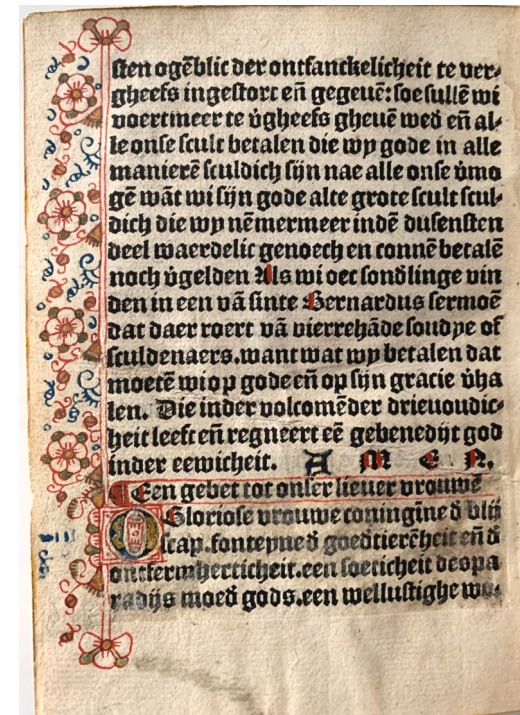 sten ogēblic der ontfanckelicheit te ver⸗
gheefs ingestort eñ gegeuē: soe sullē wi
voertmeer te v̄gheefs gheuē wed eñ al⸗
le onse scult betalen die wy gode in alle
manierē sculdich sijn nae alle onse v̄mo
gē wāt wi sijn gode alte grote scult scul⸗
dich die wy nēmermeer indē dusensten
deel waerdelic genoech en connē betalē
noch v̄gelden Als wi oec sond̄linge vin
den in een vā sinte Bernardus sermoē
dat daer roert vā vierrehāde soudye of
sculdenaers. want wat wy betalen dat
moetē wi op gode eñ op sijn gracie v̄ha
len. Die inder volcomēder drieuoudic⸗
heit leeft eñ regneert eē gebenedijt god
inder eewicheit. A M E N.
Een gebet tot onser lieuer vrouwē
O Gloriose vrouwe coningīne d̄ blij
scap. fonteyne d̄ goedtierēheit eñ d̄
ontfermherticheit. een soeticheit des pa
radijs moed̄ gods. een wellustighe wo⸗